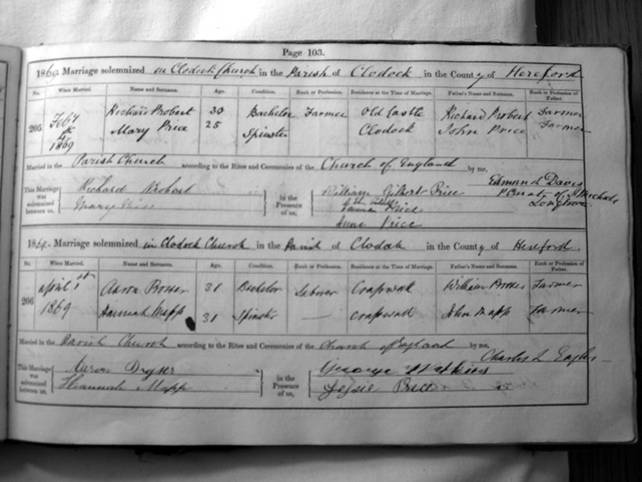 Page 103.
1869 Marriage solemnized in Clodock Church in the Parish of Clodock in the County of Hereford
No. When Married. Name and Surname. Age. Condition. Rank or Profession. Residence at the Time of Marriage. Father's Name and Surname. Rank or Profession of Father.
205 Feby Richard Probert 30 Bachelor Farmer Old Castle Richard Probert Farmer
Mary Price 25 Spinster Clodock John Price Farmer
1869
Married in the Parish Church according to the Rites and Ceremonies of the Church of England by me,
Edmund Davis
This Marriage was solemnized between us, Richard Probert in the Presence of us, William Gilbert Price
Mary Price Price
Longtown
Anne Price
186 Marriage solemnized in Clodock Church in the Parish of Clodock in the County of Hereford
No. When Married. Name and Surname. Age. Condition. Rank or Profession. Residence at the Time of Marriage. Father's Name and Surname. Rank or Profession of Father.
206 April 1st Aaron 31 Bachelor William Farmer
1869 Hannah Mapp 31 Spinster — John Mapp Farmer
Married in the Parish Church according to the Rites and Ceremonies of the Church of England by me,
Charles L Eagles
This Marriage was solemnized between us, Aaron in the Presence of us, George Watkins
Hannah Mapp Jessie Price